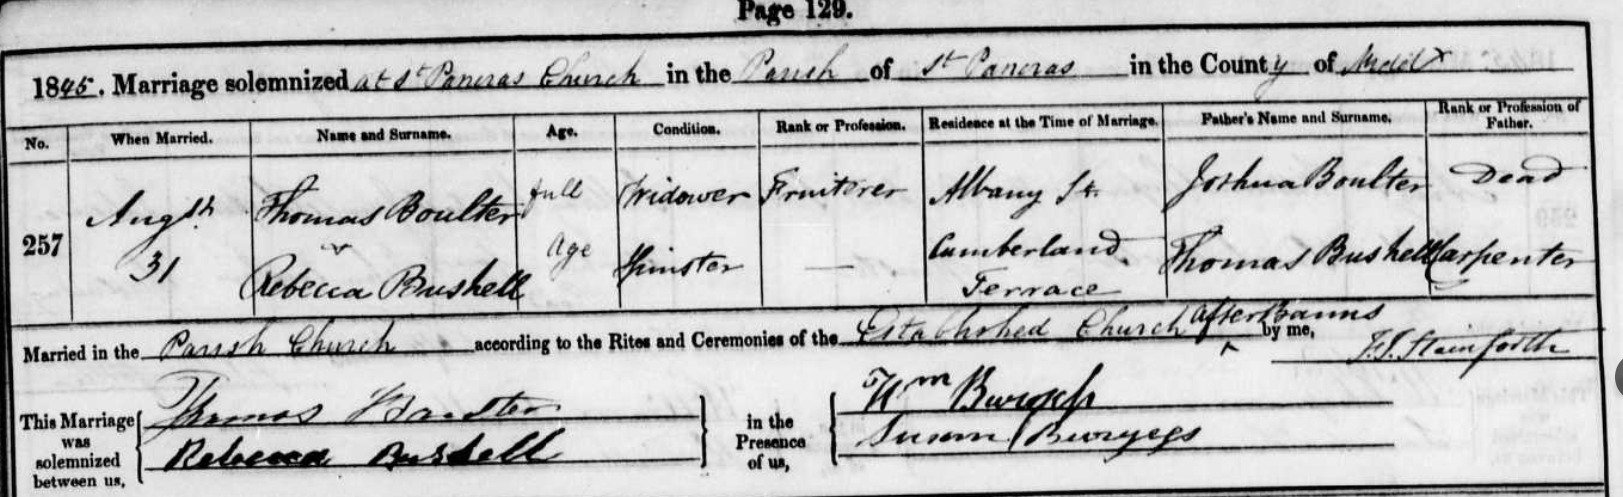 Page 129.
1845. Marriage solemnized at St Pancras Church in the Parish of St Pancras in the County of Middx
No. When Married. Name and Surname. Age. Condition. Rank or Profession. Residence at the Time of Marriage. Father's Name and Surname. Rank or Profession of Father.
257 Augst 31 Thomas Boulter full Widower Fruiterer Albany St. Joshua Boulter Dead
Rebecca Bushell Age Spinster — Cumberland Terrace Thomas Bushell Carpenter
Married in the Parish Church according to the Rites and Ceremonies of the Established Church after Banns by me, Stainforth
This Marriage was solemnized between us, Thomas Boulter Rebecca Bushell in the Presence of us, Wm Burgess Susan Burgess